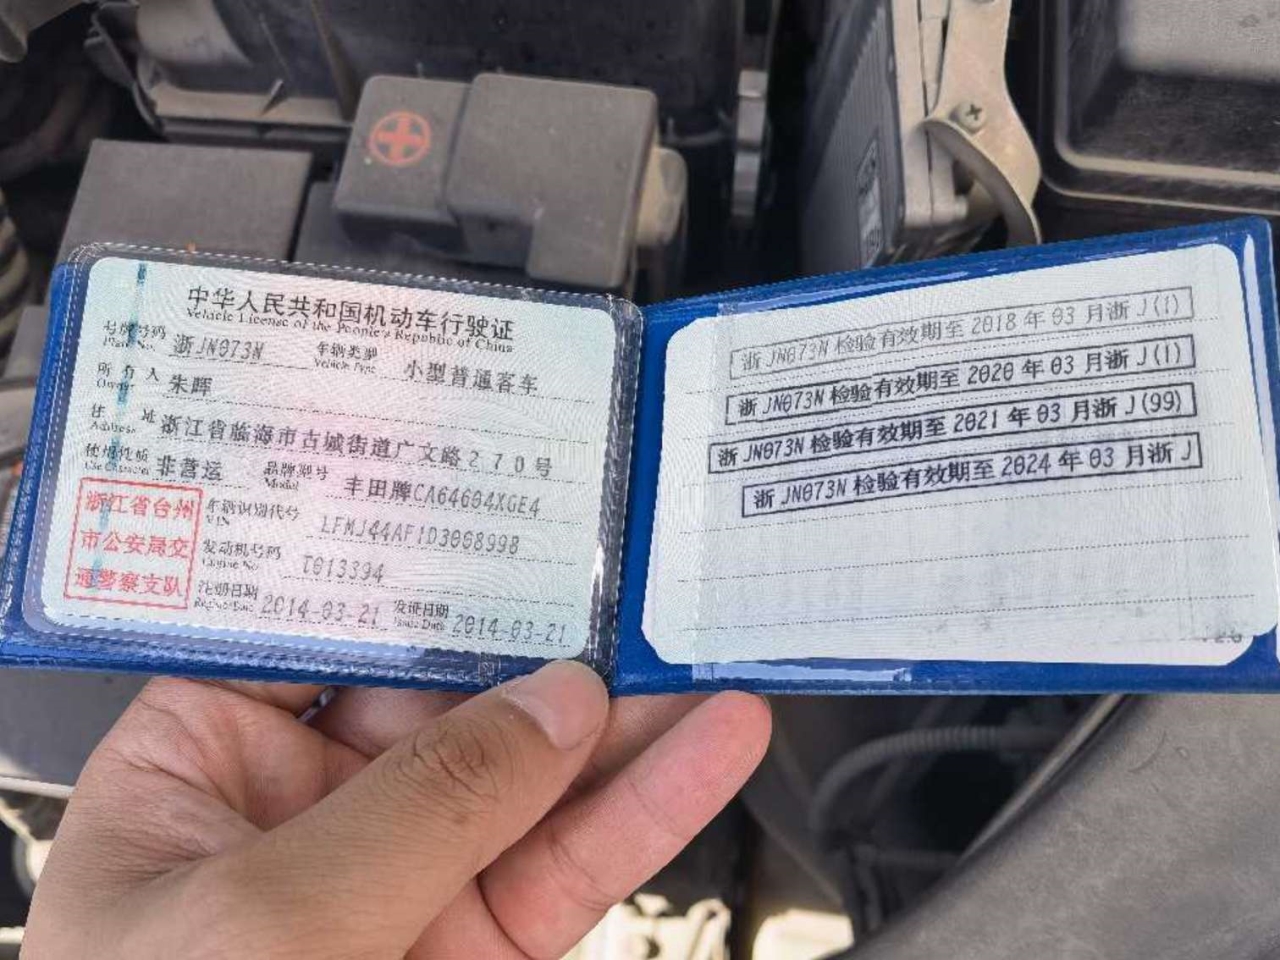 中华人民共和国机动车行驶证
Vehicle License of the People's Republic of China
号牌号码 浙JN073N 车辆类型 小型普通客车
Plate No. Vehicle Type
所有人 朱晖
Owner
住址 浙江省临海市古城街道广文路270号
Address
使用性质 非营运 品牌型号 丰田牌CA64604XGE4
Use Character Model
浙江省台州
市公安局交
通警察支队
车辆识别代号 LFMJ44AF1D3068998
VIN
发动机号码 T013394
Engine No.
注册日期 2014-03-21 发证日期 2014-03-21
Register Date Issue Date
浙JN073N检验有效期至2018年03月浙J(1)
浙JN073N检验有效期至2020年03月浙J(1)
浙JN073N检验有效期至2021年03月浙J(99)
浙JN073N检验有效期至2024年03月浙J